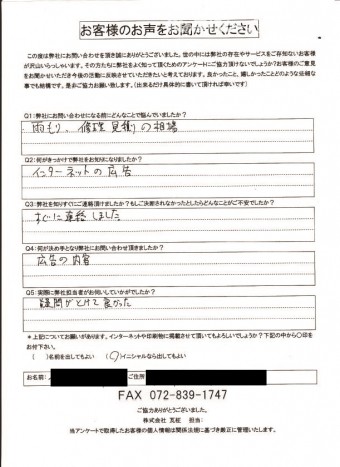 お客様のお声をお聞かせください
この度は弊社にお問い合わせを頂き誠にありがとうございました。世の中には弊社の存在やサービスをご存知ないお客様
が沢山いらっしゃいます。その方たちに弊社をよく知って頂くためのアンケートにご協力頂けないでしょうか?お客様のご意見
をお聞かせいただき今後の活動に反映させていただきたいと考えております。良かったこと、嬉しかったことどのような些細な
事でも結構です。是非ご協力お願い致します。(出来るだけ具体的に書いて頂ければ幸いです)
Q1:弊社にお問い合わせになる前にどんなことで悩んでいましたか?
雨もり、修理見積りの相場
Q2:何がきっかけで弊社をお知りになりましたか?
インターネットの広告
Q3:弊社を知りすぐにご連絡頂けましたか?もしご決断されなかったとしたらどんなことがご不安でしたか?
すぐに連絡しました
Q4:何が決め手となり弊社にお問い合わせ頂きましたか?
広告の内容
Q5:実際に弊社担当者がお伺いしていかがでしたか?
疑問がとけて良かった
*上記についてお願いがあります。インターネットや印刷物に掲載させて頂いてもよろしいでしょうか?下記の中から〇印を
お付下さい。
( )名前を出してもよい (〇)イニシャルなら出してもよい
お名前 ご住所
FAX 072-839-1747
ご協力ありがとうございました。
株式会社 瓦粧 担当:
当アンケートで取得したお客様の個人情報は関係法規に基づき厳正に管理いたします。